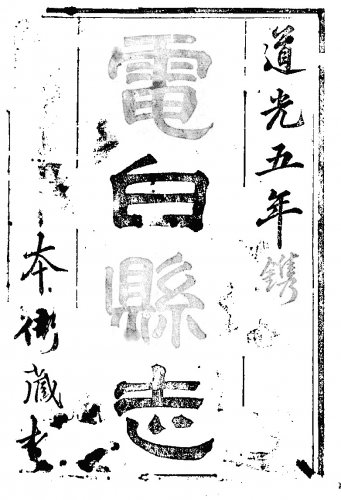 道光五年鐫
電白縣志
本衙藏書